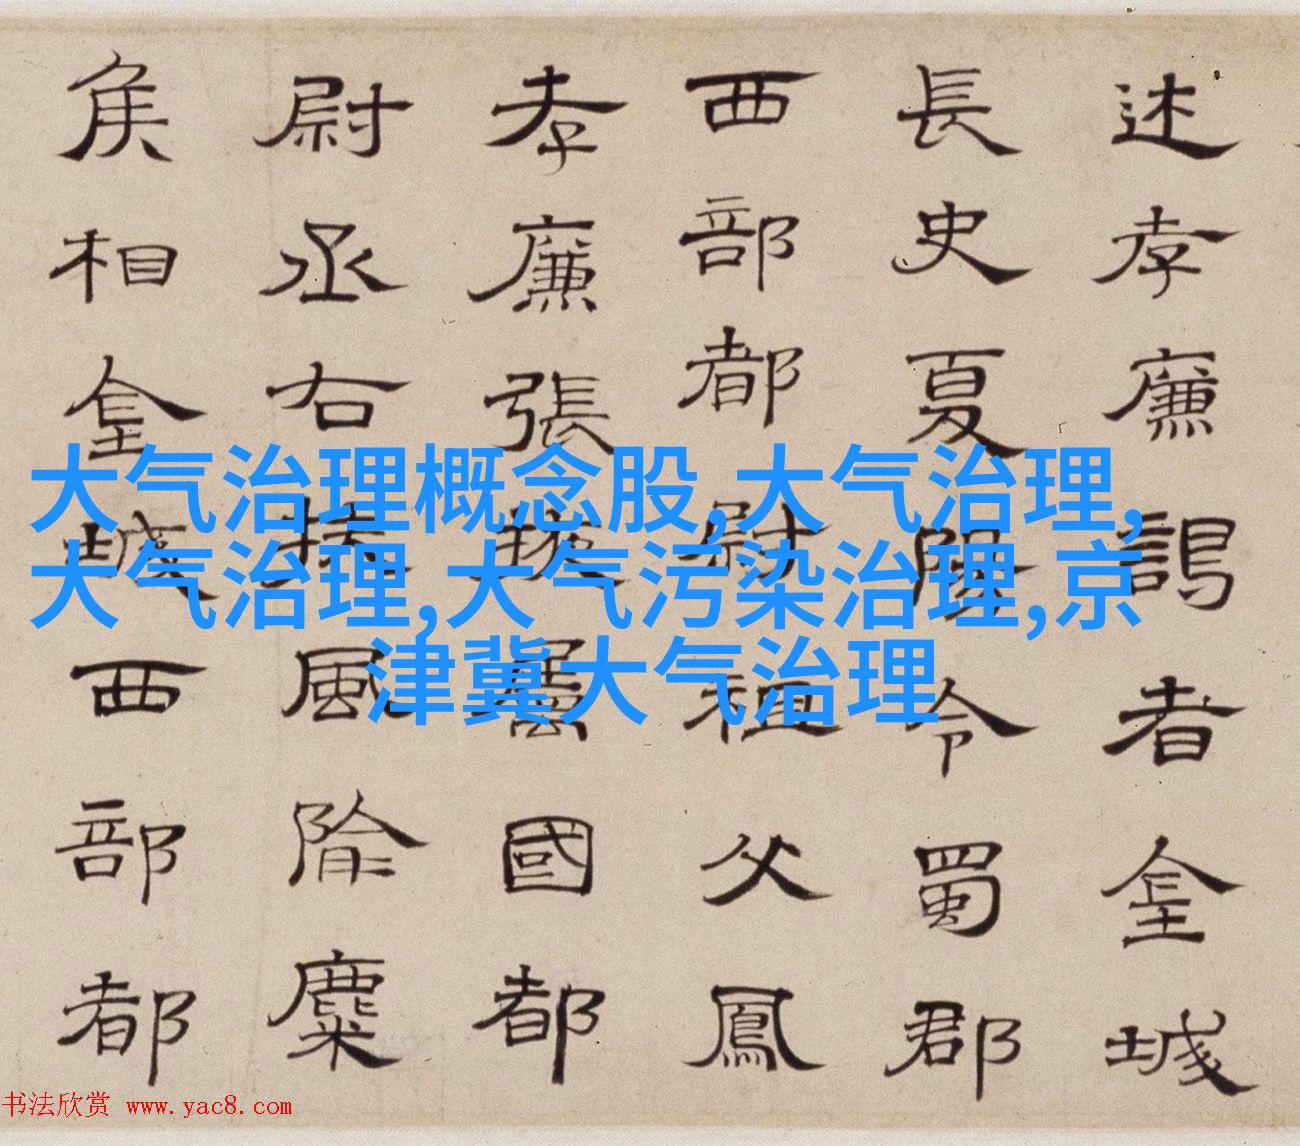 述孝廉謁者金城
長史夏陽令蜀郡
西部都尉祖父鳳
孝廉張掖屬國都
尉丞右扶風隃麋
侯相金城西部都
大气治理概念股,大气治理,
大气治理,大气污染治理,京
津冀大气治理
书法欣赏 www.yac8.com